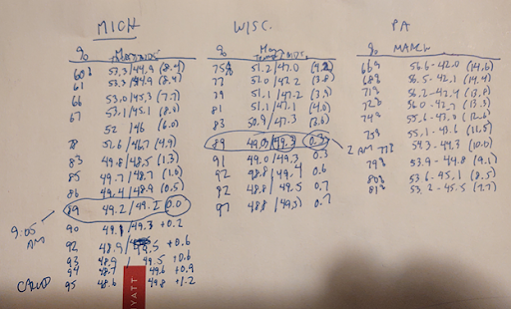 MICH
%
60% 53.3/44.9 (8.4)
61 53.3/44.9 (8.4)
66 53.0/45.3 (7.7)
67 53.1/45.1 (8.0)
52 /46 (6.0)
78 51.6/46.7 (4.9)
83 49.8/48.5 (1.3)
85 49.7/48.7 (1.0)
86 49.4/48.9 (0.5)
9:05 AM
89 49.2/49.2 0.0
90 49.1/49.3 +0.2
92 48.9/49.5 +0.6
93 48.9/49.5 +0.6
94 48.7 49.6 +0.9
95 48.6 49.8 +1.2
WISC.
%
75% 51.2/47.0 (4.2)
77 51.0/47.2 (3.8)
79 51.1/47.2 (3.9)
81 51.1/47.1 (4.0)
83 50.9/47.3 (3.6)
89 49.0/49.3 0.3
91 49.0/49.3 0.3
92 48.8/49.4 0.6
92 48.8/49.5 0.7
97 48.8/49.5 0.7
PA
%
66% 56.6-42.0 (14.6)
68% 56.5-42.1 (14.4)
71% 56.2-42.4 (13.8)
72% 56.0-42.7 (13.3)
74% 55.6-43.0 (12.6)
75% 55.1-43.6 (11.5)
2 AM 77% 54.3-44.3 (10.0)
79% 53.9-44.8 (9.1)
80% 53.6-45.1 (8.5)
81% 53.2-45.5 (7.7)
YATT